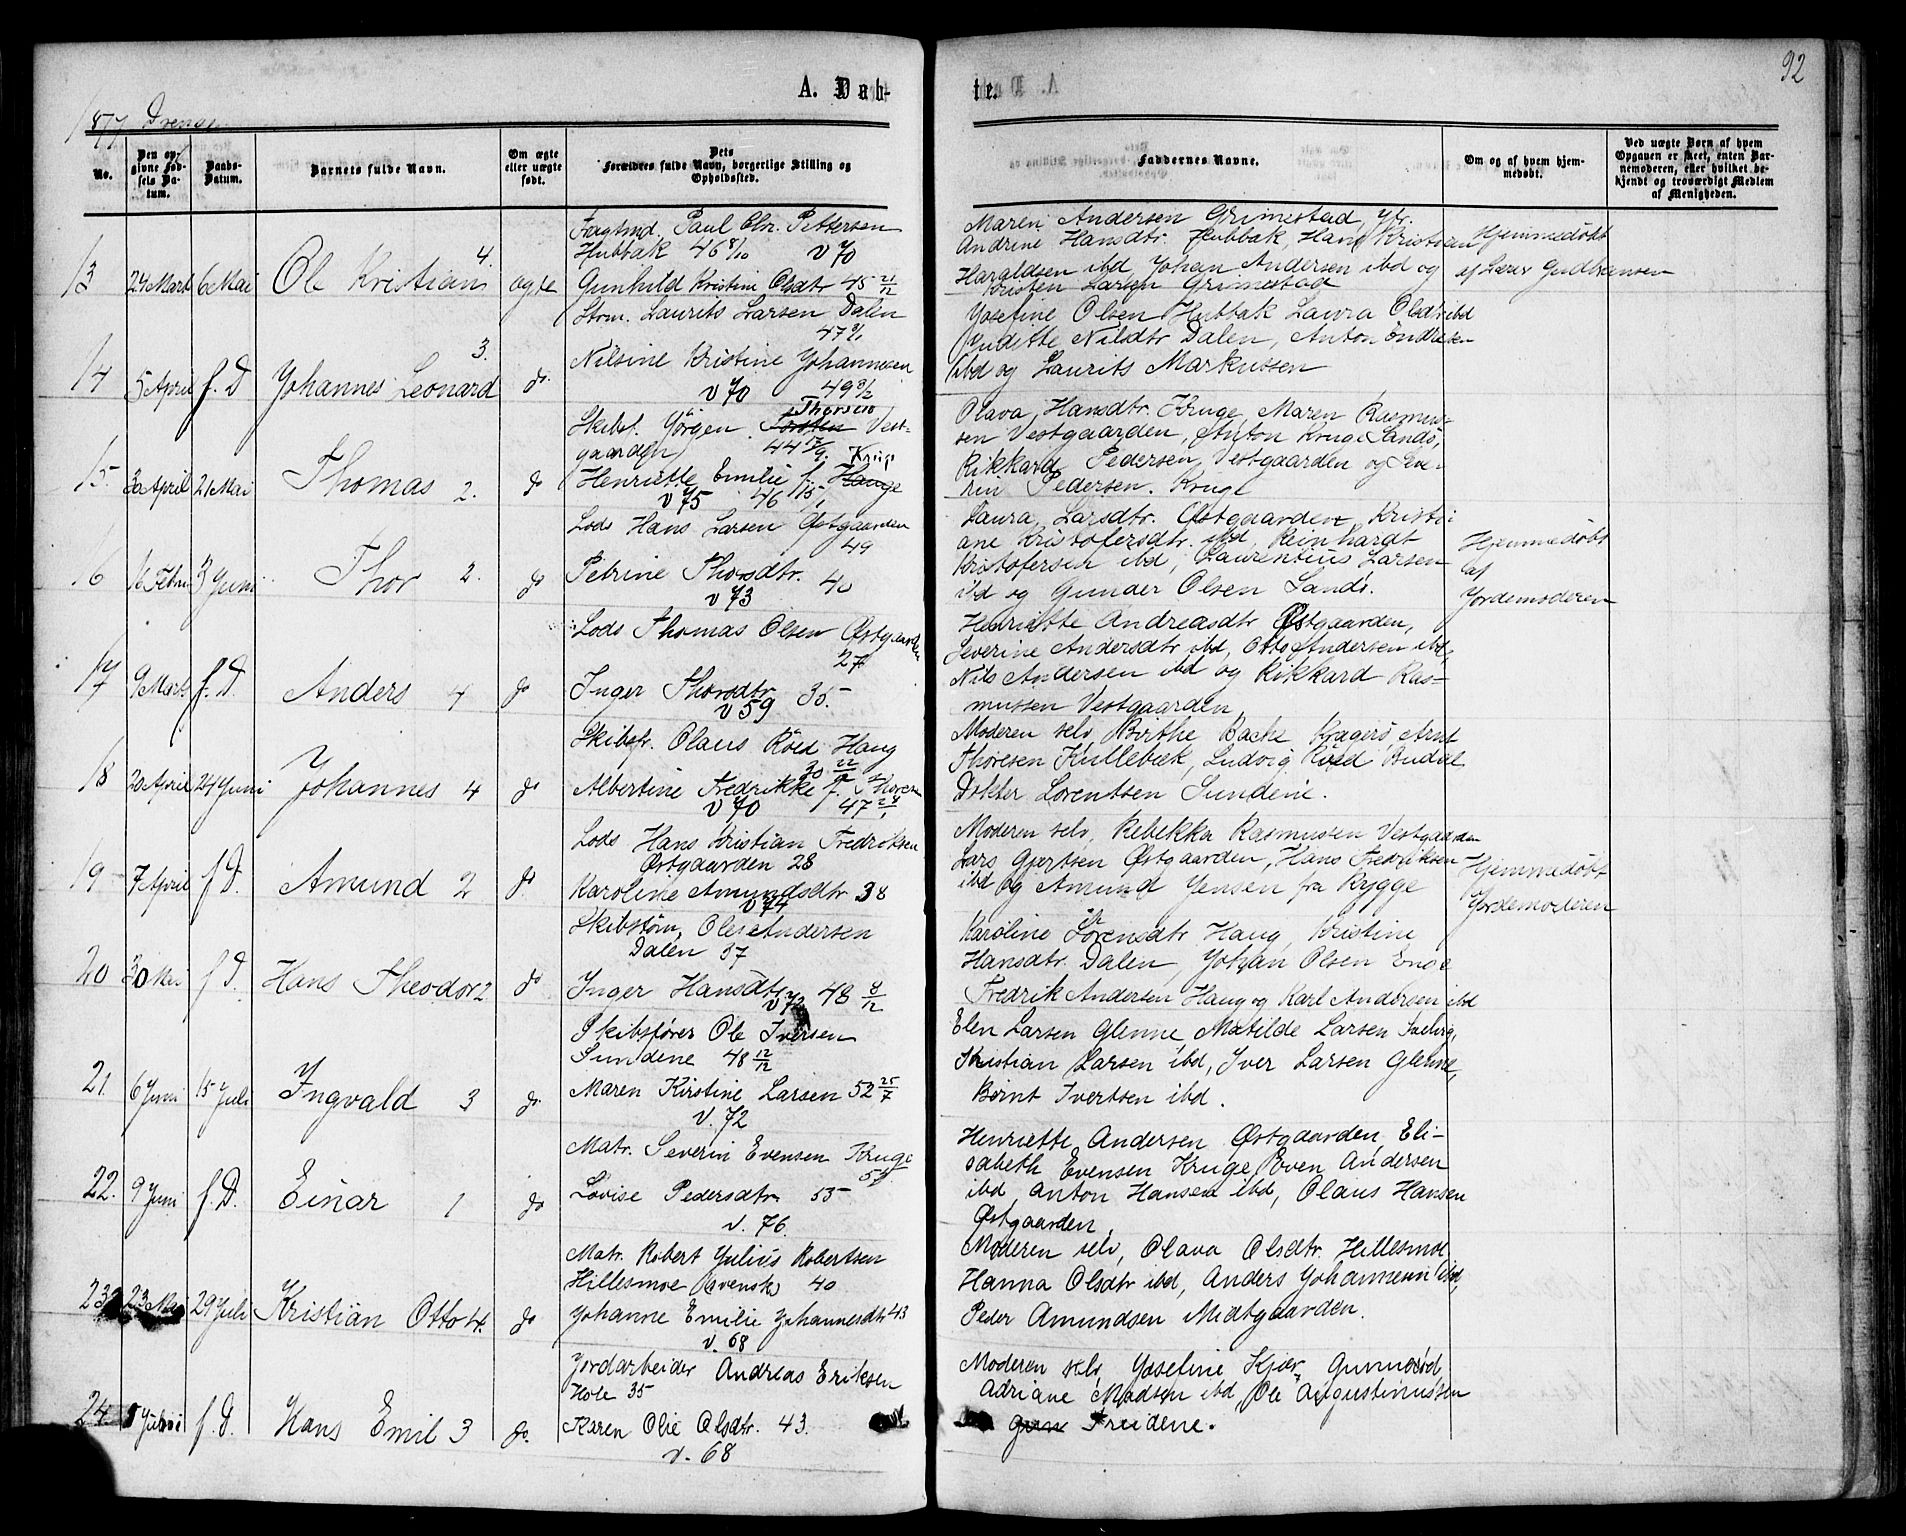 92
A. Døb-
te.
1877 Drenge
No.
Den opgivne Fødsels Datum.
Daabs-Datum.
Barnets fulde Navn.
Om ægte eller uægte født.
Dets Forældres fulde Navn, borgerlige Stilling og Opholdssted.
Faddernes Navne.
Om og af hvem hjemmedøbt.
Ved uægte Børn af hvem Opgaven er skeet, enten Barnemoderen, eller hvilket bekjendt og troværdigt Medlem af Menigheden.
13 24 Marts 6 Mai Ole Kristian 4. ægte
Paul Chr. Pettersen
Hubbak 46 8/10 v 70
Gunhild Kristine Olsdtr 45 21/12
Maren Andersen Grimestad,
Andrine Hansdtr. Hubbak, Hans Kristian
Haraldsen ibd, Johan Andersen ibd og
Kristen Larsen Grimestad
Hjemmedøbt
af Lærer Gudbransen
14 5 April f. D Johannes Leonard 3. do
Strm. Laurits Larsen Dalen
47 9/1
Nilsine Kristine Johannesen
v 70 49 3/2
Josefine Olsen Hubbak Laura Olsdtr ibd
Nilsdtr Dalen, Anton Endresen
ibd og Laurits Markussen
15 30 April 21 Mai Thomas 2. do
Thorsen
Skibst. Jörgen Torsten Vest-
gaarden 44 17/9. Kruge
Henriette Emilie f. Hauge
v 75 46 15/1
Olava Hansdtr. Kruge, Maren Rasmus-
sen Vestgaarden, Anton Kruge Sandö,
Rikkard Pedersen Vestgaarden og
Pedersen. Kruge
16 16 Febru 3 Juni Thor 2. do
Lods Hans Larsen Østgaarden
49
Petrine Thorsdtr. 40
v 73
Laura Larsdtr. Østgaarden, Kristi-
ane Kristofersdtr. ibd, Reinhardt
Kristofersen ibd, Laurentius Larsen
ibd og Gunder Olsen Sandö.
Hjemmedöbt
af
Jordemoderen
17 9 Marts f. D. Anders 4 do
Lods Thomas Olsen Østgaarden
27
Inger Thorsdtr 35-
v 59
Henriette Andreasdtr Østgaarden,
Severine Andersdtr ibd, Otto Andersen ibd,
Nils Andersen ibd og Rikkard Ras-
mussen Vestgaarden
18 20 April 24 Juni Johannes 4 do
Skibsfr. Olaus Röed Haug
30 22/9
Albertine Fredrikke f. Thoresen
v 70 47
Moderen selv Birthe Backe Kragerö, Arnt
Thoresen Kullebæk, Ludvig Röed Budal
Dokter Lorentsen Sundene.
19 7 April f D. Amund 2 do
Lods Hans Kristian Fredriksen
Østgaarden 28
Karoline Amundsdtr 38
v 74
Moderen selv, Rebekka Rasmussen Vestgaarden
Lars Gjertsen Østgaarden, Hans Fredriksen
ibd og Amund Jensen fra Rygge
Hjemmedøbt
Jordemoderen
20 30 Mai f D. Hans Theodor 2 do
Skibstöm. Ole Andersen
Dalen 37
Inger Hansdtr 48 8/12
v 72
Karoline Sörensdtr Haug, Kristine
Hansdtr. Dalen, Johan Olsen Enge
Fredrik Andersen Haug og Karl Andersen ibd
21. 6 Juni 15 Juli Ingvald 3 do.
Skibsförer Ole Iversen
Sundene 48 12/12
Maren Kirstine Larsen 52 25/7
v. 72
Elen Larsen Glenne, Matilde Larsen
Kristian Larsen ibd, Iver Larsen Glenne,
Børnt Ivertsen ibd.
22. 9 Juni f. D. Einar 1 do
Matr. Severin Evensen Kruge
Lovise Pedersdtr. 55
v. 76.
Henriette Andersen Østgaarden, Eli-
sabeth Evensen Kruge, Even Andersen
ibd, Anton Hansen ibd, Olaus Hansen
Østgaarden,
23 23 Mai 29 Juli Kristian Otto 4. do
Matr. Robert Julius Robertsen
Hillesmoe (svensk) 40
Johanne Emilie Johannesdtr 43
v. 68
Moderen selv, Olava Olsdtr. Hillesmoe
Hanna Olsdtr ibd, Anders Johannesen ibd,
Peder Amundsen Midtgaarden.
24 f. D. Hans Emil 3 do.
Jordarbeider Andreas Eriksen
Hole 35
Karen Olie Olsdtr. 43.
v. 68
Moderen selv, Josefine Kjær, Gunnerød,
Adriane Madsen ibd, Ole Augustinussen
Freidene.